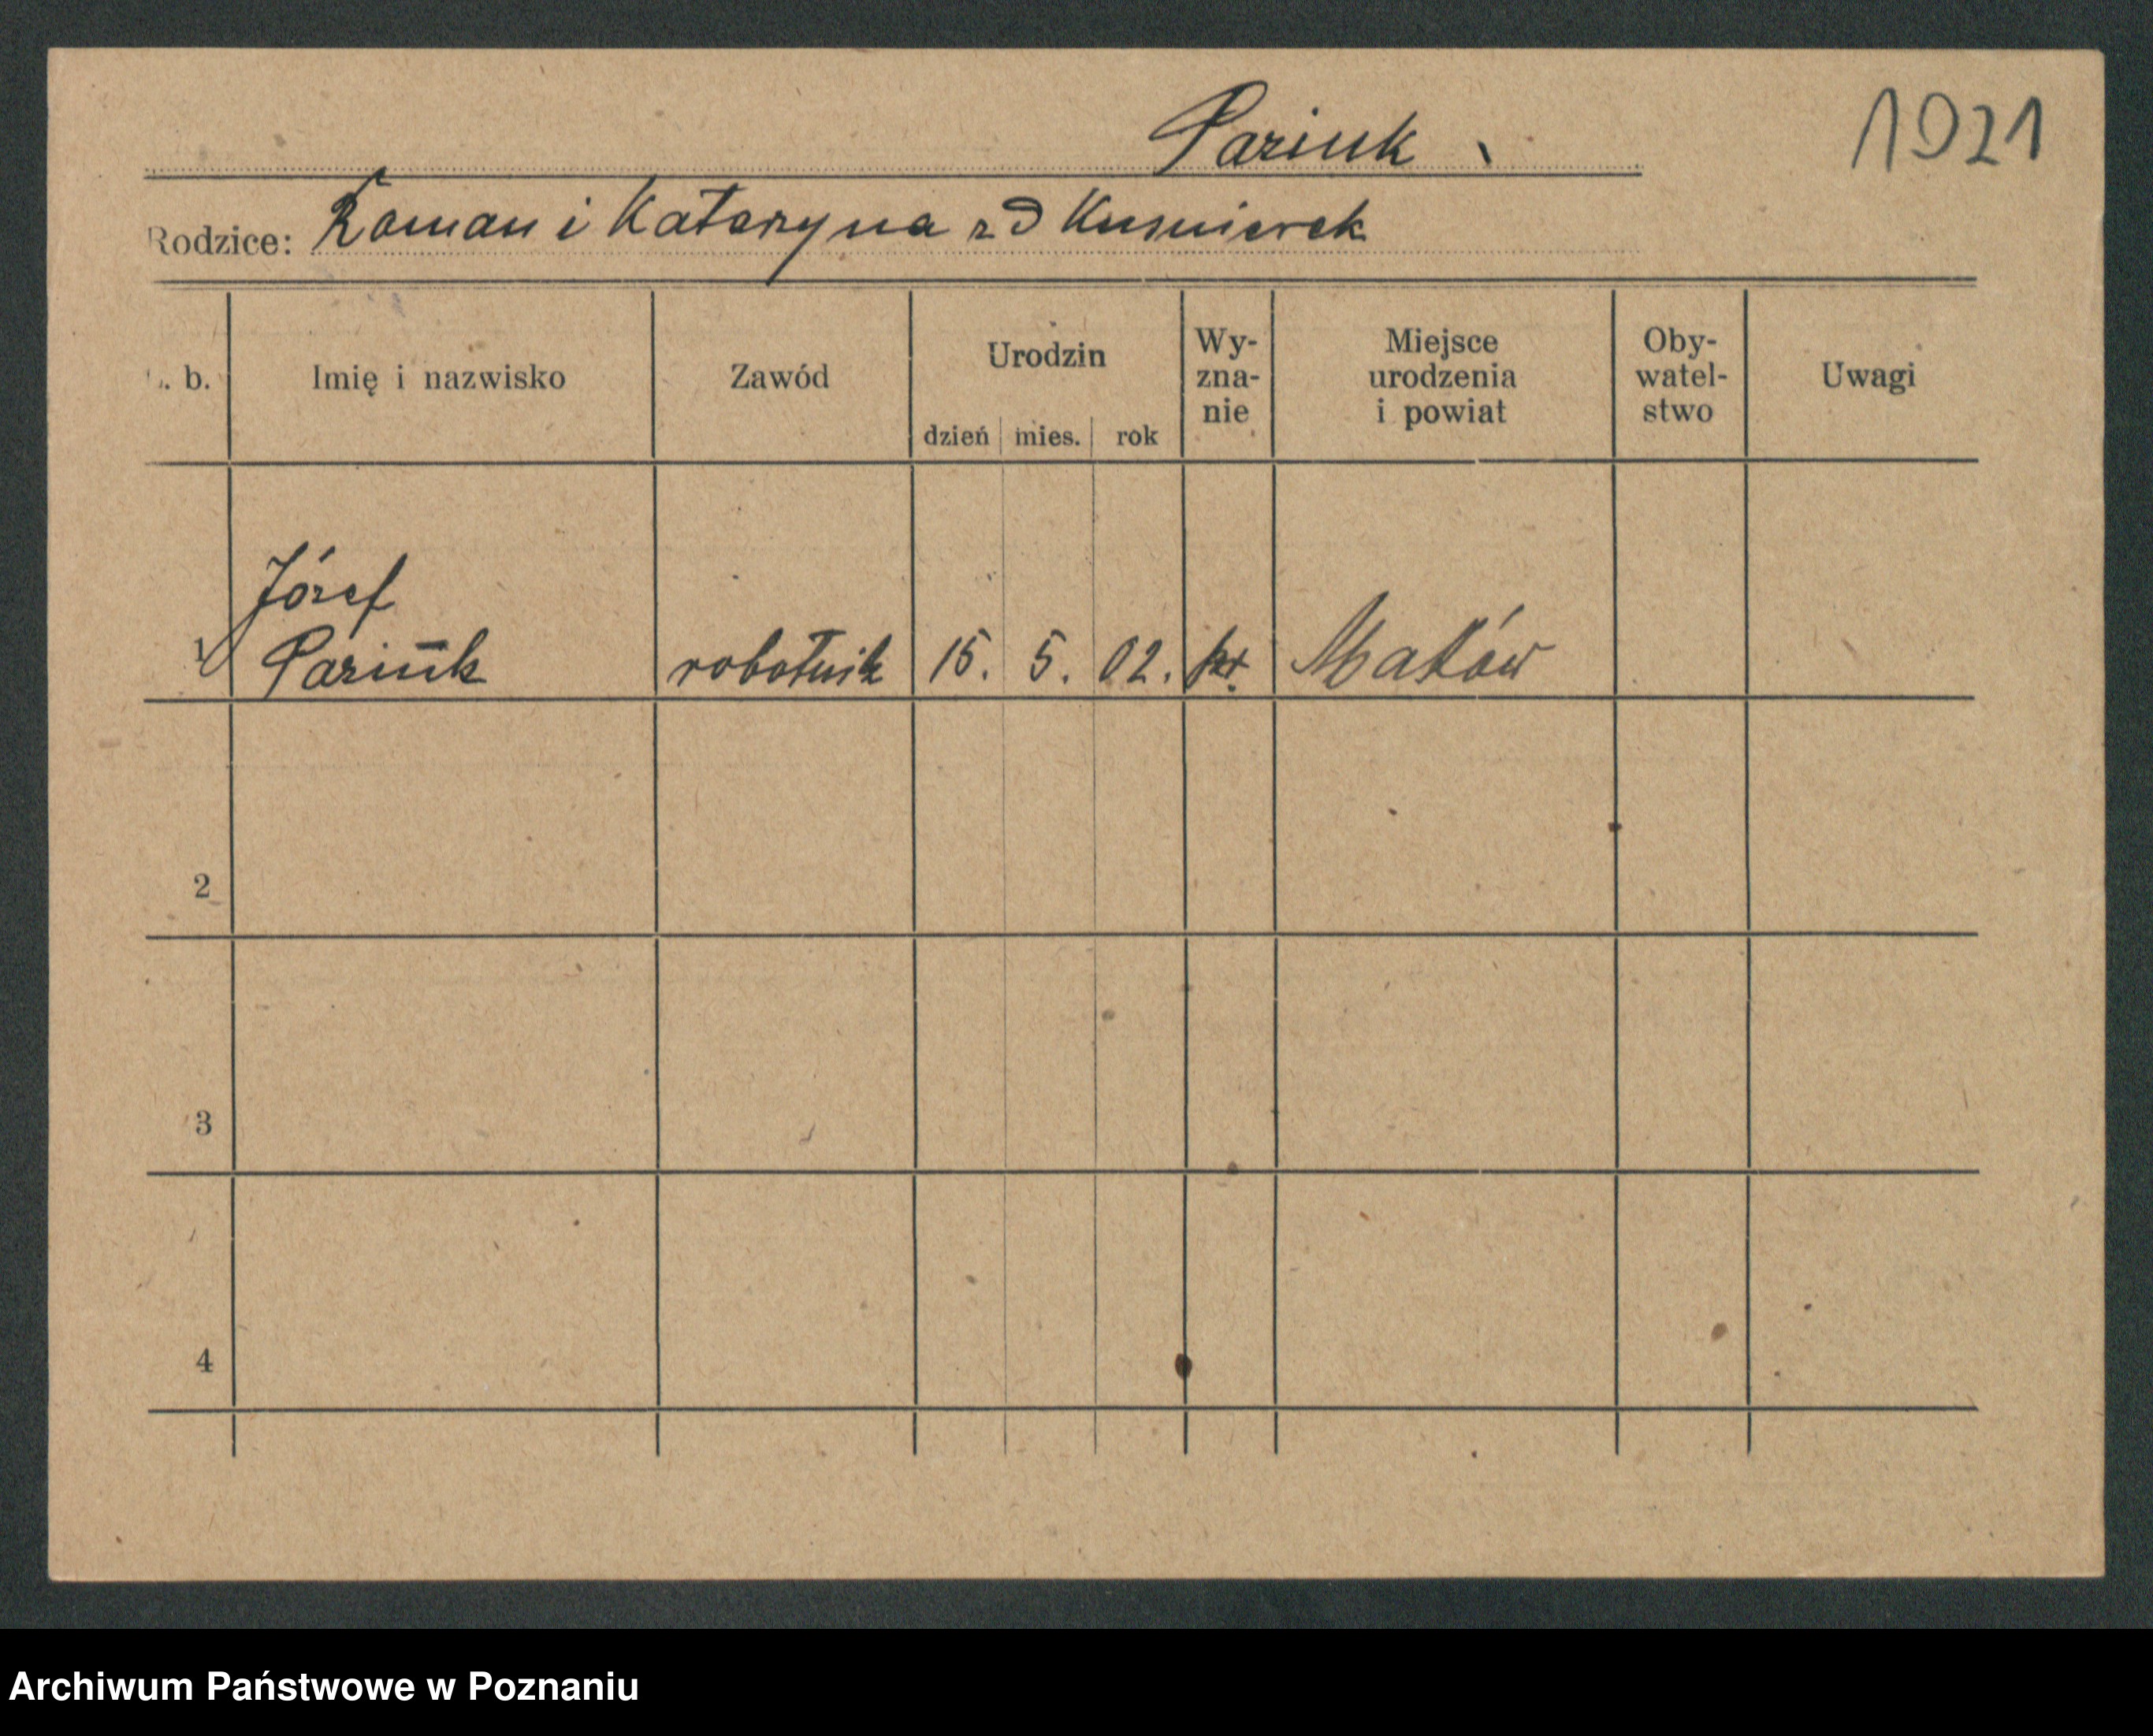 Pariuk
1921
Rodzice: Roman i Katarzyna zd Kusnierek
L. b.
Imię i nazwisko
Zawód
Urodzin
dzień mies. rok
Wy-
zna-
nie
Miejsce
urodzenia
i powiat
Oby-
watel-
stwo
Uwagi
Józef
1 Pariuk robotnik 15. 5. 02. kt. Maków
2
3
4
Archiwum Państwowe w Poznaniu